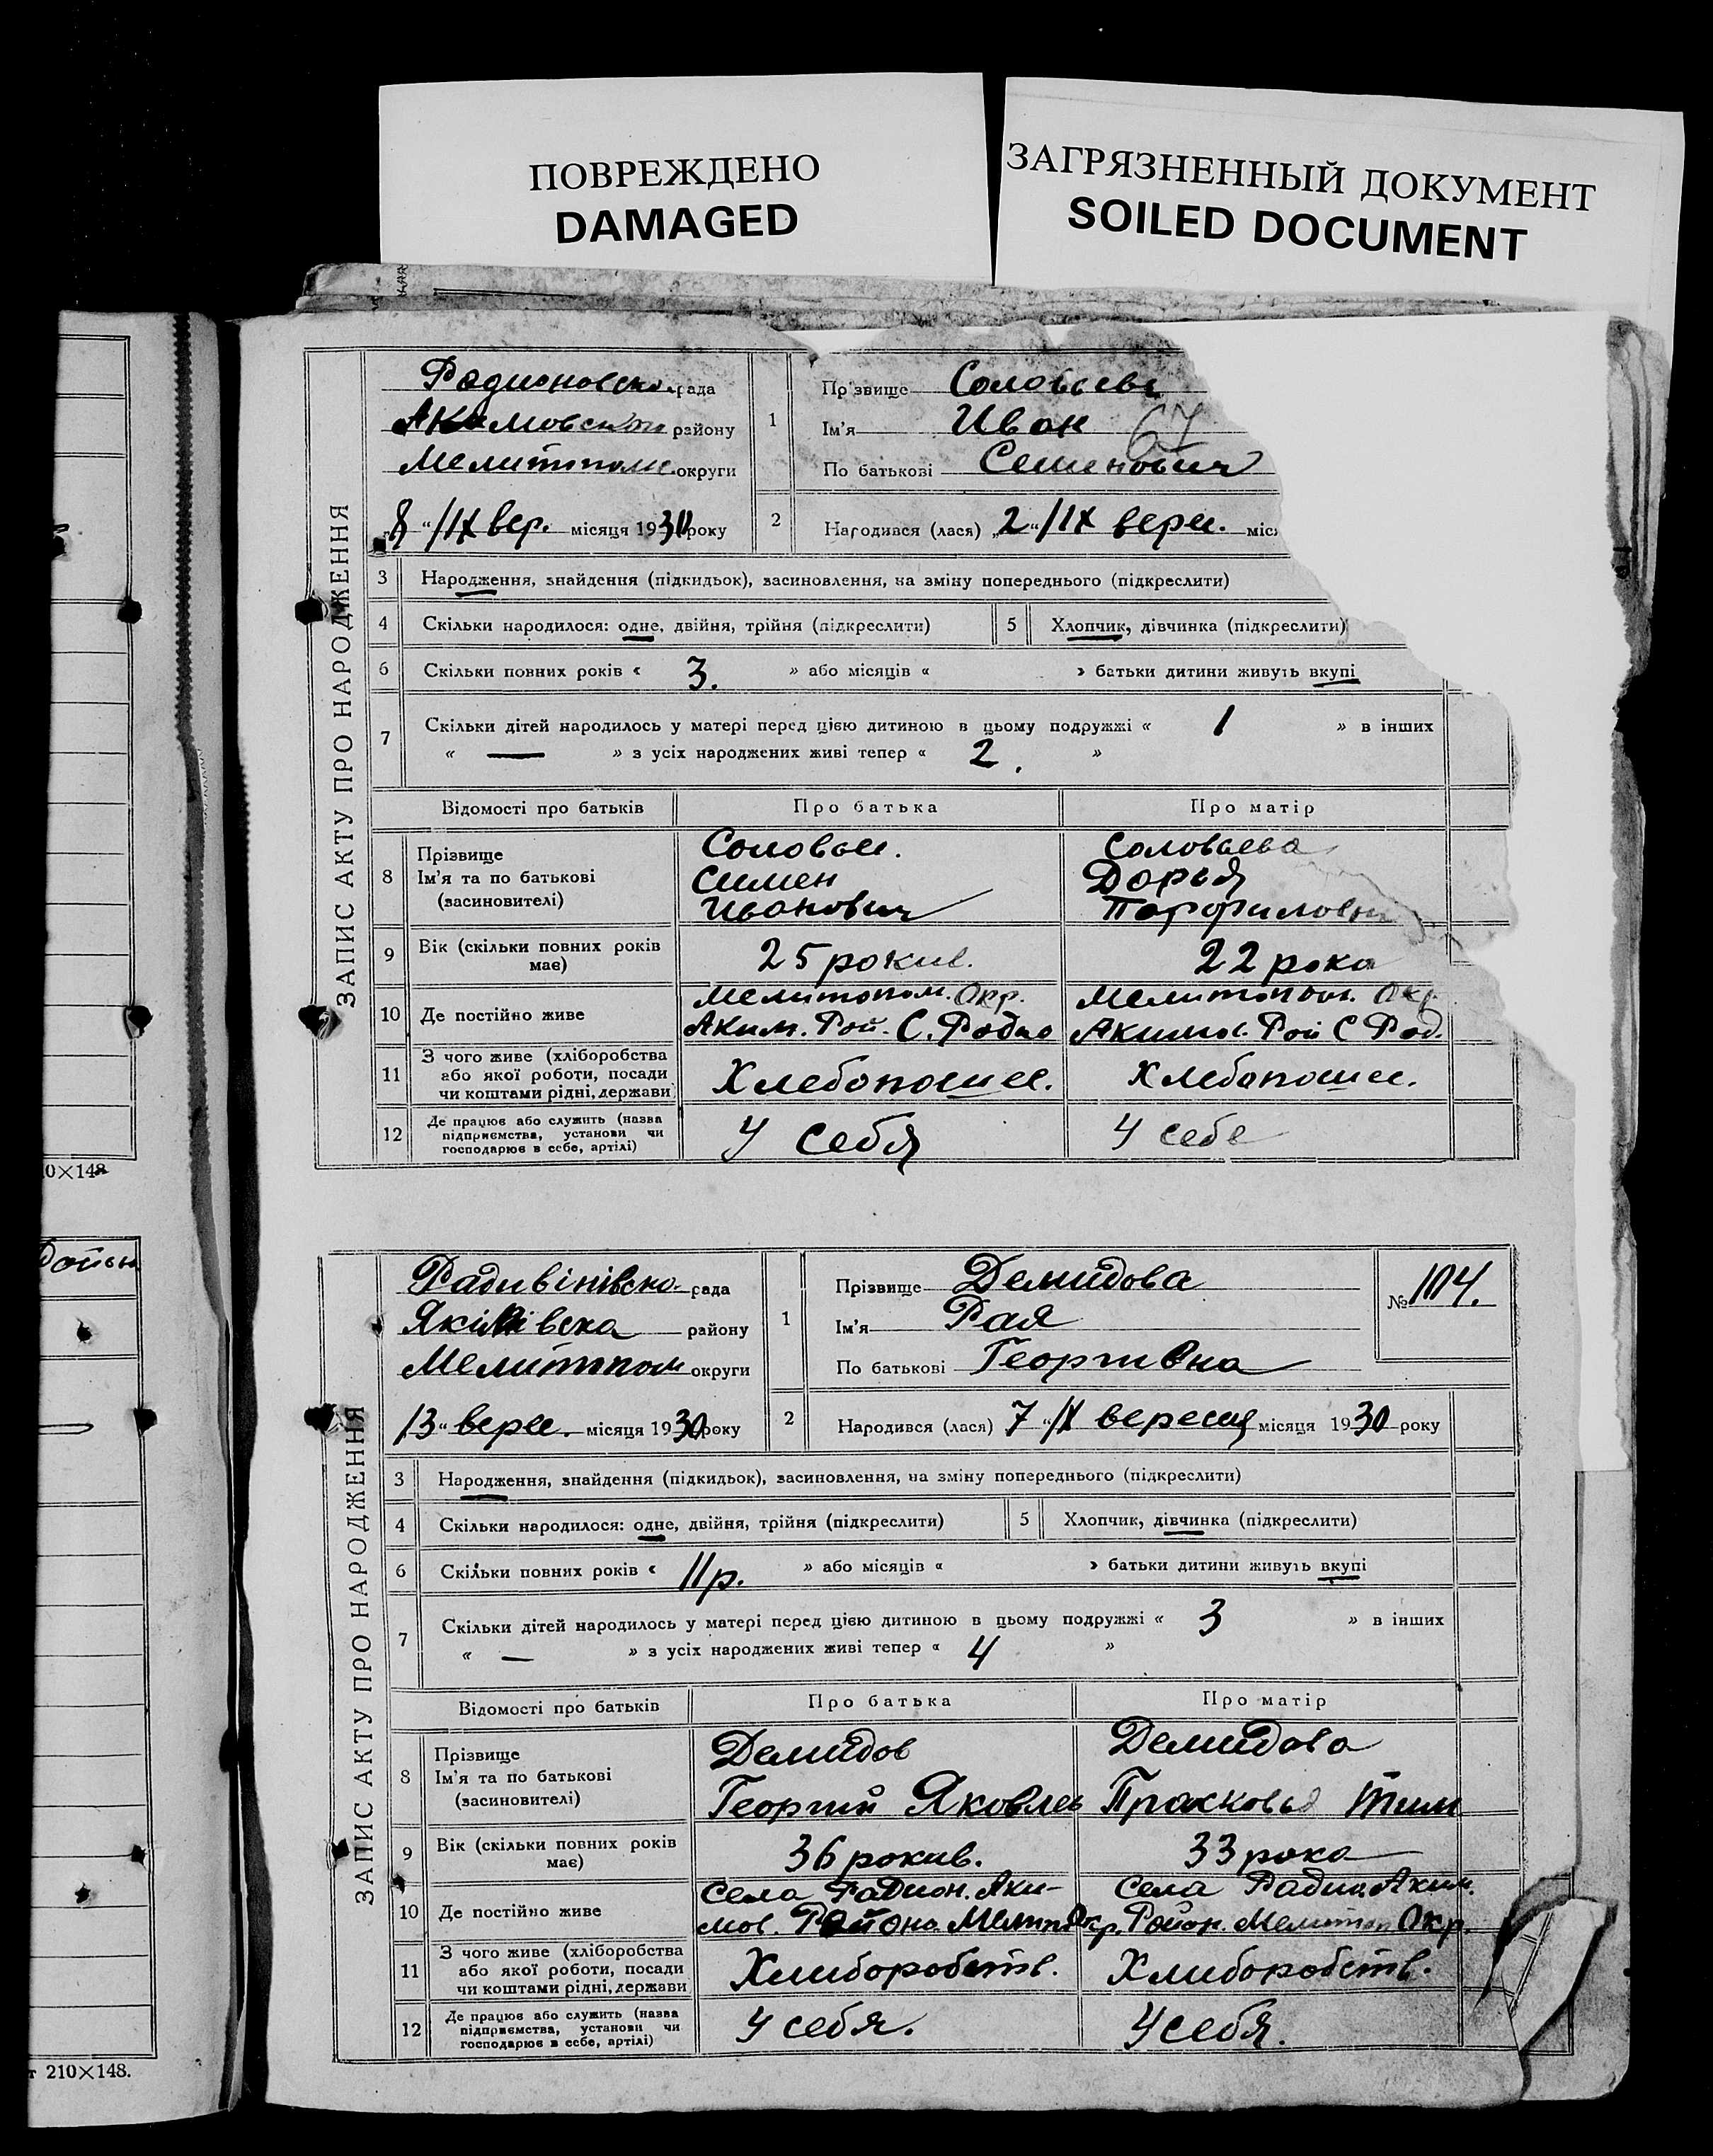 ПОВРЕЖДЕНО
DAMAGED
ЗАГРЯЗНЕННЫЙ ДОКУМЕНТ
SOILED DOCUMENT
ЗАПИС АКТУ ПРО НАРОДЖЕННЯ
Родионовско. рада
Акимовского району
Мелитопол. округи
8 "/IX вер. місяця 1930 року
1
Прізвище Соловьев
Ім'я Иван 67
По батькові Семенович
2
Народився (лася) „2"/IX верес. міс
3 Народження, знайдення (підкидьок), засиновлення, на зміну попереднього (підкреслити)
4 Скільки народилося: одне, двійня, трійня (підкреслити) 5 Хлопчик, дівчинка (підкреслити)
6 Скільки повних років « 3. » або місяців « » батьки дитини живуть вкупі
7 Скільки дітей народилось у матері перед цією дитиною в цьому подружжі « 1 » в інших
« — » з усіх народжених живі тепер « 2. »
Відомості про батьків Про батька Про матір
8 Прізвище
Ім'я та по батькові
(засновителі)
Соловьев.
Симен
Иванович
Соловьева
Дорья
Парфиловн
9 Вік (скільки повних років має) 25 рокив. 22 рока
10 Де постійно живе
Мелитопол. Окр.
Аким. Рой. С. Родио
Мелитопол. Окр.
Акимов. Рой С Род.
11 З чого живе (хліборобства
або якої роботи, посади
чи коштами рідні, держави)
Хлебопошес. Хлебопошес.
12 Де працює або служить (назва
підприємства, установи чи
господарює в себе, артілі)
У себя У себе
0×148
ЗАПИС АКТУ ПРО НАРОДЖЕННЯ
Радивінівско- рада
Якімівска району
Мелитопол округи
13 " верес. місяця 1930 року
1
Прізвище Демидова
Ім'я Рая
По батькові Георгивна
№ 104.
2
Народився (лася) 7 "/IX вересня місяця 1930 року
3 Народження, знайдення (підкидьок), засиновлення, на зміну попереднього (підкреслити)
4 Скільки народилося: одне, двійня, трійня (підкреслити) 5 Хлопчик, дівчинка (підкреслити)
6 Скільки повних років « 11р. » або місяців « » батьки дитини живуть вкупі
7 Скільки дітей народилось у матері перед цією дитиною в цьому подружжі « 3 » в інших
« — » з усіх народжених живі тепер « 4 »
Відомості про батьків Про батька Про матір
8 Прізвище
Ім'я та по батькові
(засиновителі)
Демидов
Георгий Яковлев
Демидова
Прасковья Тим
9 Вік (скільки повних років має) 36 рокив. 33 рока
10 Де постійно живе
Села Радион. Аки-
мов. Района Мелит Окр.
Села Радио. Аким.
Район. Мелитоп Окр.
11 З чого живе (хліборобства
або якої роботи, посади
чи коштами рідні, держави
Хлиборобств. Хлиборобств.
12 Де працює або служить (назва
підприємства, установи чи
господарює в себе, артілі)
У себя. У себя.
т 210×148.